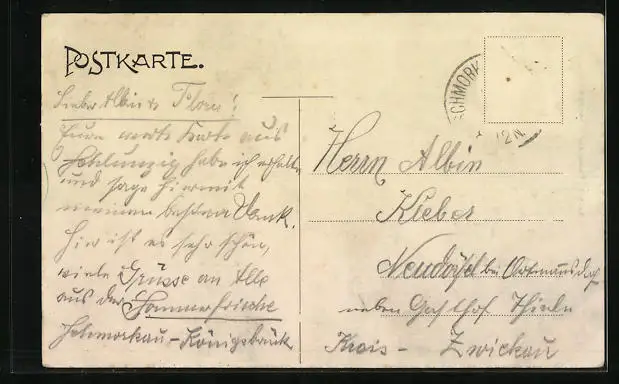 POSTKARTE.
SCHMORK
12N.
Lieber Albin & Flora!
Eure werte Karte aus
habe ich erhalten
und sage hiermit
meinen besten Dank.
Hier ist es sehr schön,
viele Grüsse an Alle
aus der Sommerfrische
Schmorkau-Königsbrück
Herrn Albin
Kleber
Neudörfel bei Ortmannsdorf
neben Gasthof Thiele
Kreis - Zwickau